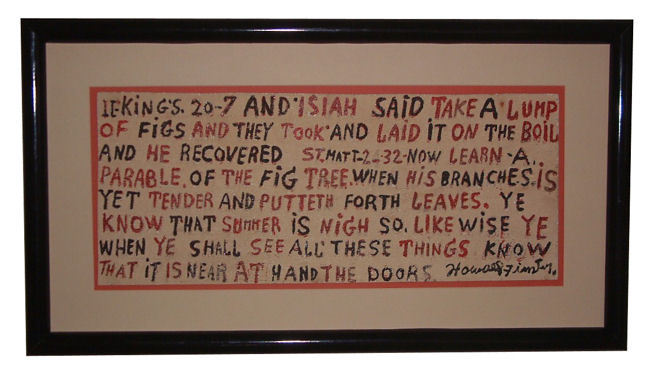 II-KING'S. 20-7 AND ISIAH SAID TAKE A LUMP
OF FIGS AND THEY TOOK AND LAID IT ON THE BOIL
AND HE RECOVERED ST. MATT-2-32-NOW LEARN-A.
PARABLE. OF THE FIG TREE. WHEN HIS BRANCHES. IS
YET TENDER AND PUTTETH FORTH LEAVES. YE
KNOW THAT SUMMER IS NIGH SO. LIKE WISE YE
WHEN YE SHALL SEE ALL THESE THINGS KNOW
THAT IT IS NEAR AT HAND THE DOORS. Howard Finster.